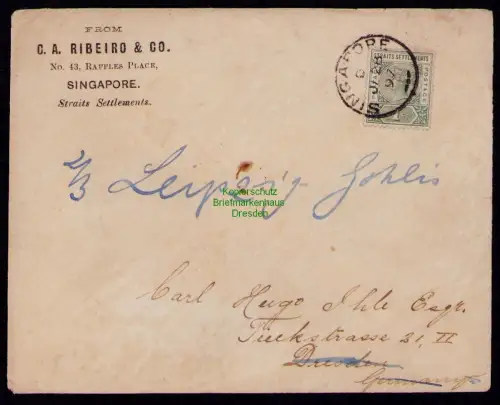 FROM
C. A. RIBEIRO & CO.
No. 43, RAFFLES PLACE,
SINGAPORE.
Straits Settlements.
SINGAPORE
STRAITS SETTLEMENTS
POSTAGE
2/3 Leipzig Gohlis
Kopierschutz
Briefmarkenhaus
Dresden
Carl Hugo Ihle Esqr.
Tieckstrasse 21, II
Dresden
Germany